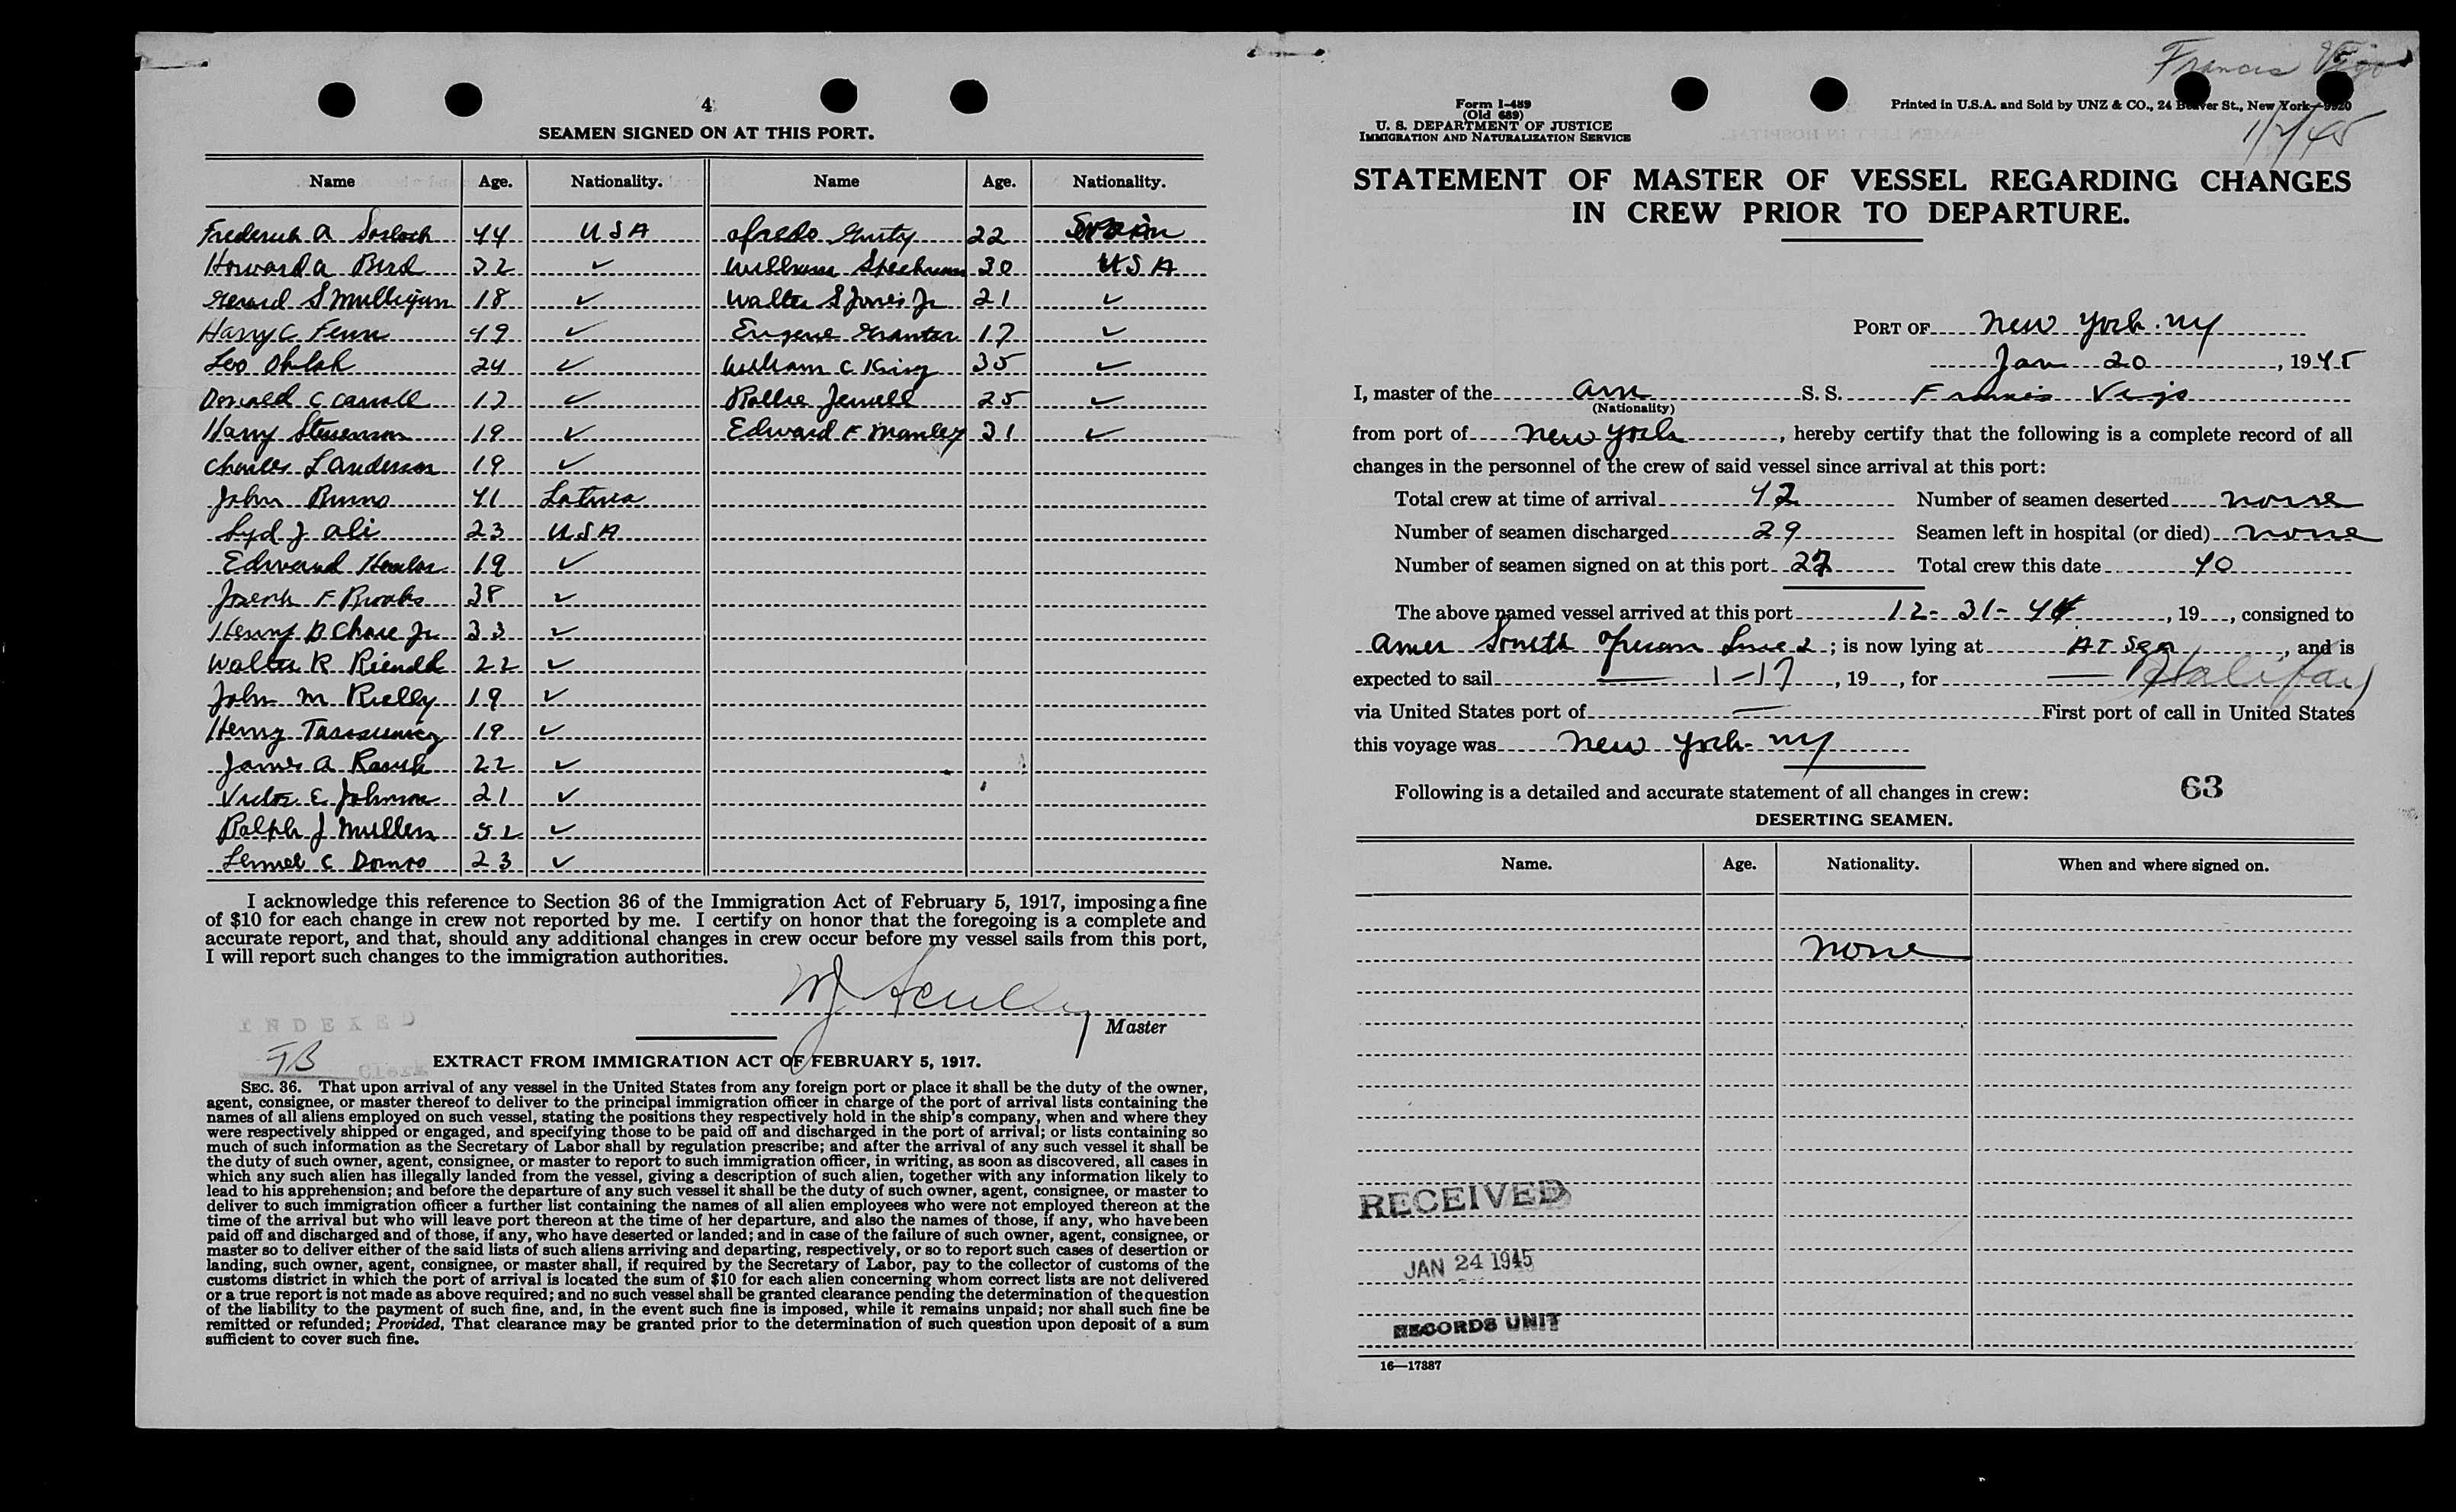 4
SEAMEN SIGNED ON AT THIS PORT.
Name Age. Nationality. Name Age. Nationality.
Frederick A 44 USA 22
Howard A Bird 32 ✓ William 30 USA
Gerard S Mulligan 18 ✓ Walter S Jones Jr 21 ✓
Harry C Fenn 49 ✓ Eugene 17 ✓
Leo 24 ✓ William C King 35 ✓
Donald C Carroll 17 ✓ Rollie Jewell 25 ✓
Harry Stevenson 19 ✓ Edward F Manley 31 ✓
Charles L Anderson 19 ✓
John Bruno 41 Latvia
Syd J Ali 23 USA
Edward 19 ✓
Joseph F Brooks 38 ✓
Henry B Chase Jr 33 ✓
Walter R 22 ✓
John M Rielly 19 ✓
Henry 19 ✓
James A 22 ✓
Victor E Johnson 21 ✓
Ralph J Mullen 52 ✓
Lemuel C 23 ✓
I acknowledge this reference to Section 36 of the Immigration Act of February 5, 1917, imposing a fine
of $10 for each change in crew not reported by me. I certify on honor that the foregoing is a complete and
accurate report, and that, should any additional changes in crew occur before my vessel sails from this port,
I will report such changes to the immigration authorities.
MJ Scully
Master
INDEXED
TB Clerk
EXTRACT FROM IMMIGRATION ACT OF FEBRUARY 5, 1917.
SEC. 36. That upon arrival of any vessel in the United States from any foreign port or place it shall be the duty of the owner,
agent, consignee, or master thereof to deliver to the principal immigration officer in charge of the port of arrival lists containing the
names of all aliens employed on such vessel, stating the positions they respectively hold in the ship's company, when and where they
were respectively shipped or engaged, and specifying those to be paid off and discharged in the port of arrival; or lists containing so
much of such information as the Secretary of Labor shall by regulation prescribe; and after the arrival of any such vessel it shall be
the duty of such owner, agent, consignee, or master to report to such immigration officer, in writing, as soon as discovered, all cases in
which any such alien has illegally landed from the vessel, giving a description of such alien, together with any information likely to
lead to his apprehension; and before the departure of any such vessel it shall be the duty of such owner, agent, consignee, or master to
deliver to such immigration officer a further list containing the names of all alien employees who were not employed thereon at the
time of the arrival but who will leave port thereon at the time of her departure, and also the names of those, if any, who have been
paid off and discharged and of those, if any, who have deserted or landed; and in case of the failure of such owner, agent, consignee, or
master so to deliver either of the said lists of such aliens arriving and departing, respectively, or so to report such cases of desertion or
landing, such owner, agent, consignee, or master shall, if required by the Secretary of Labor, pay to the collector of customs of the
customs district in which the port of arrival is located the sum of $10 for each alien concerning whom correct lists are not delivered
or a true report is not made as above required; and no such vessel shall be granted clearance pending the determination of the question
of the liability to the payment of such fine, and, in the event such fine is imposed, while it remains unpaid; nor shall such fine be
remitted or refunded; Provided, That clearance may be granted prior to the determination of such question upon deposit of a sum
sufficient to cover such fine.
Francis Vigo
Form I-489
(Old 689)
U. S. DEPARTMENT OF JUSTICE
IMMIGRATION AND NATURALIZATION SERVICE
Printed in U.S.A. and Sold by UNZ & CO., 24 Beaver St., New York—9320
1/2/45
STATEMENT OF MASTER OF VESSEL REGARDING CHANGES
IN CREW PRIOR TO DEPARTURE.
PORT OF New York. NY
Jan 20, 1945
I, master of the Am S. S. Francis Vigo
(Nationality)
from port of New York, hereby certify that the following is a complete record of all
changes in the personnel of the crew of said vessel since arrival at this port:
Total crew at time of arrival 42 Number of seamen deserted none
Number of seamen discharged 29 Seamen left in hospital (or died) none
Number of seamen signed on at this port 27 Total crew this date 40
The above named vessel arrived at this port 12-31-44, 19, consigned to
Amer South African Line; is now lying at AT Sea, and is
expected to sail 1-17, 19, for Halifax
via United States port of — First port of call in United States
this voyage was New York - NY
Following is a detailed and accurate statement of all changes in crew: 63
DESERTING SEAMEN.
Name. Age. Nationality. When and where signed on.
none
RECEIVED
JAN 24 1945
RECORDS UNIT
16—17387